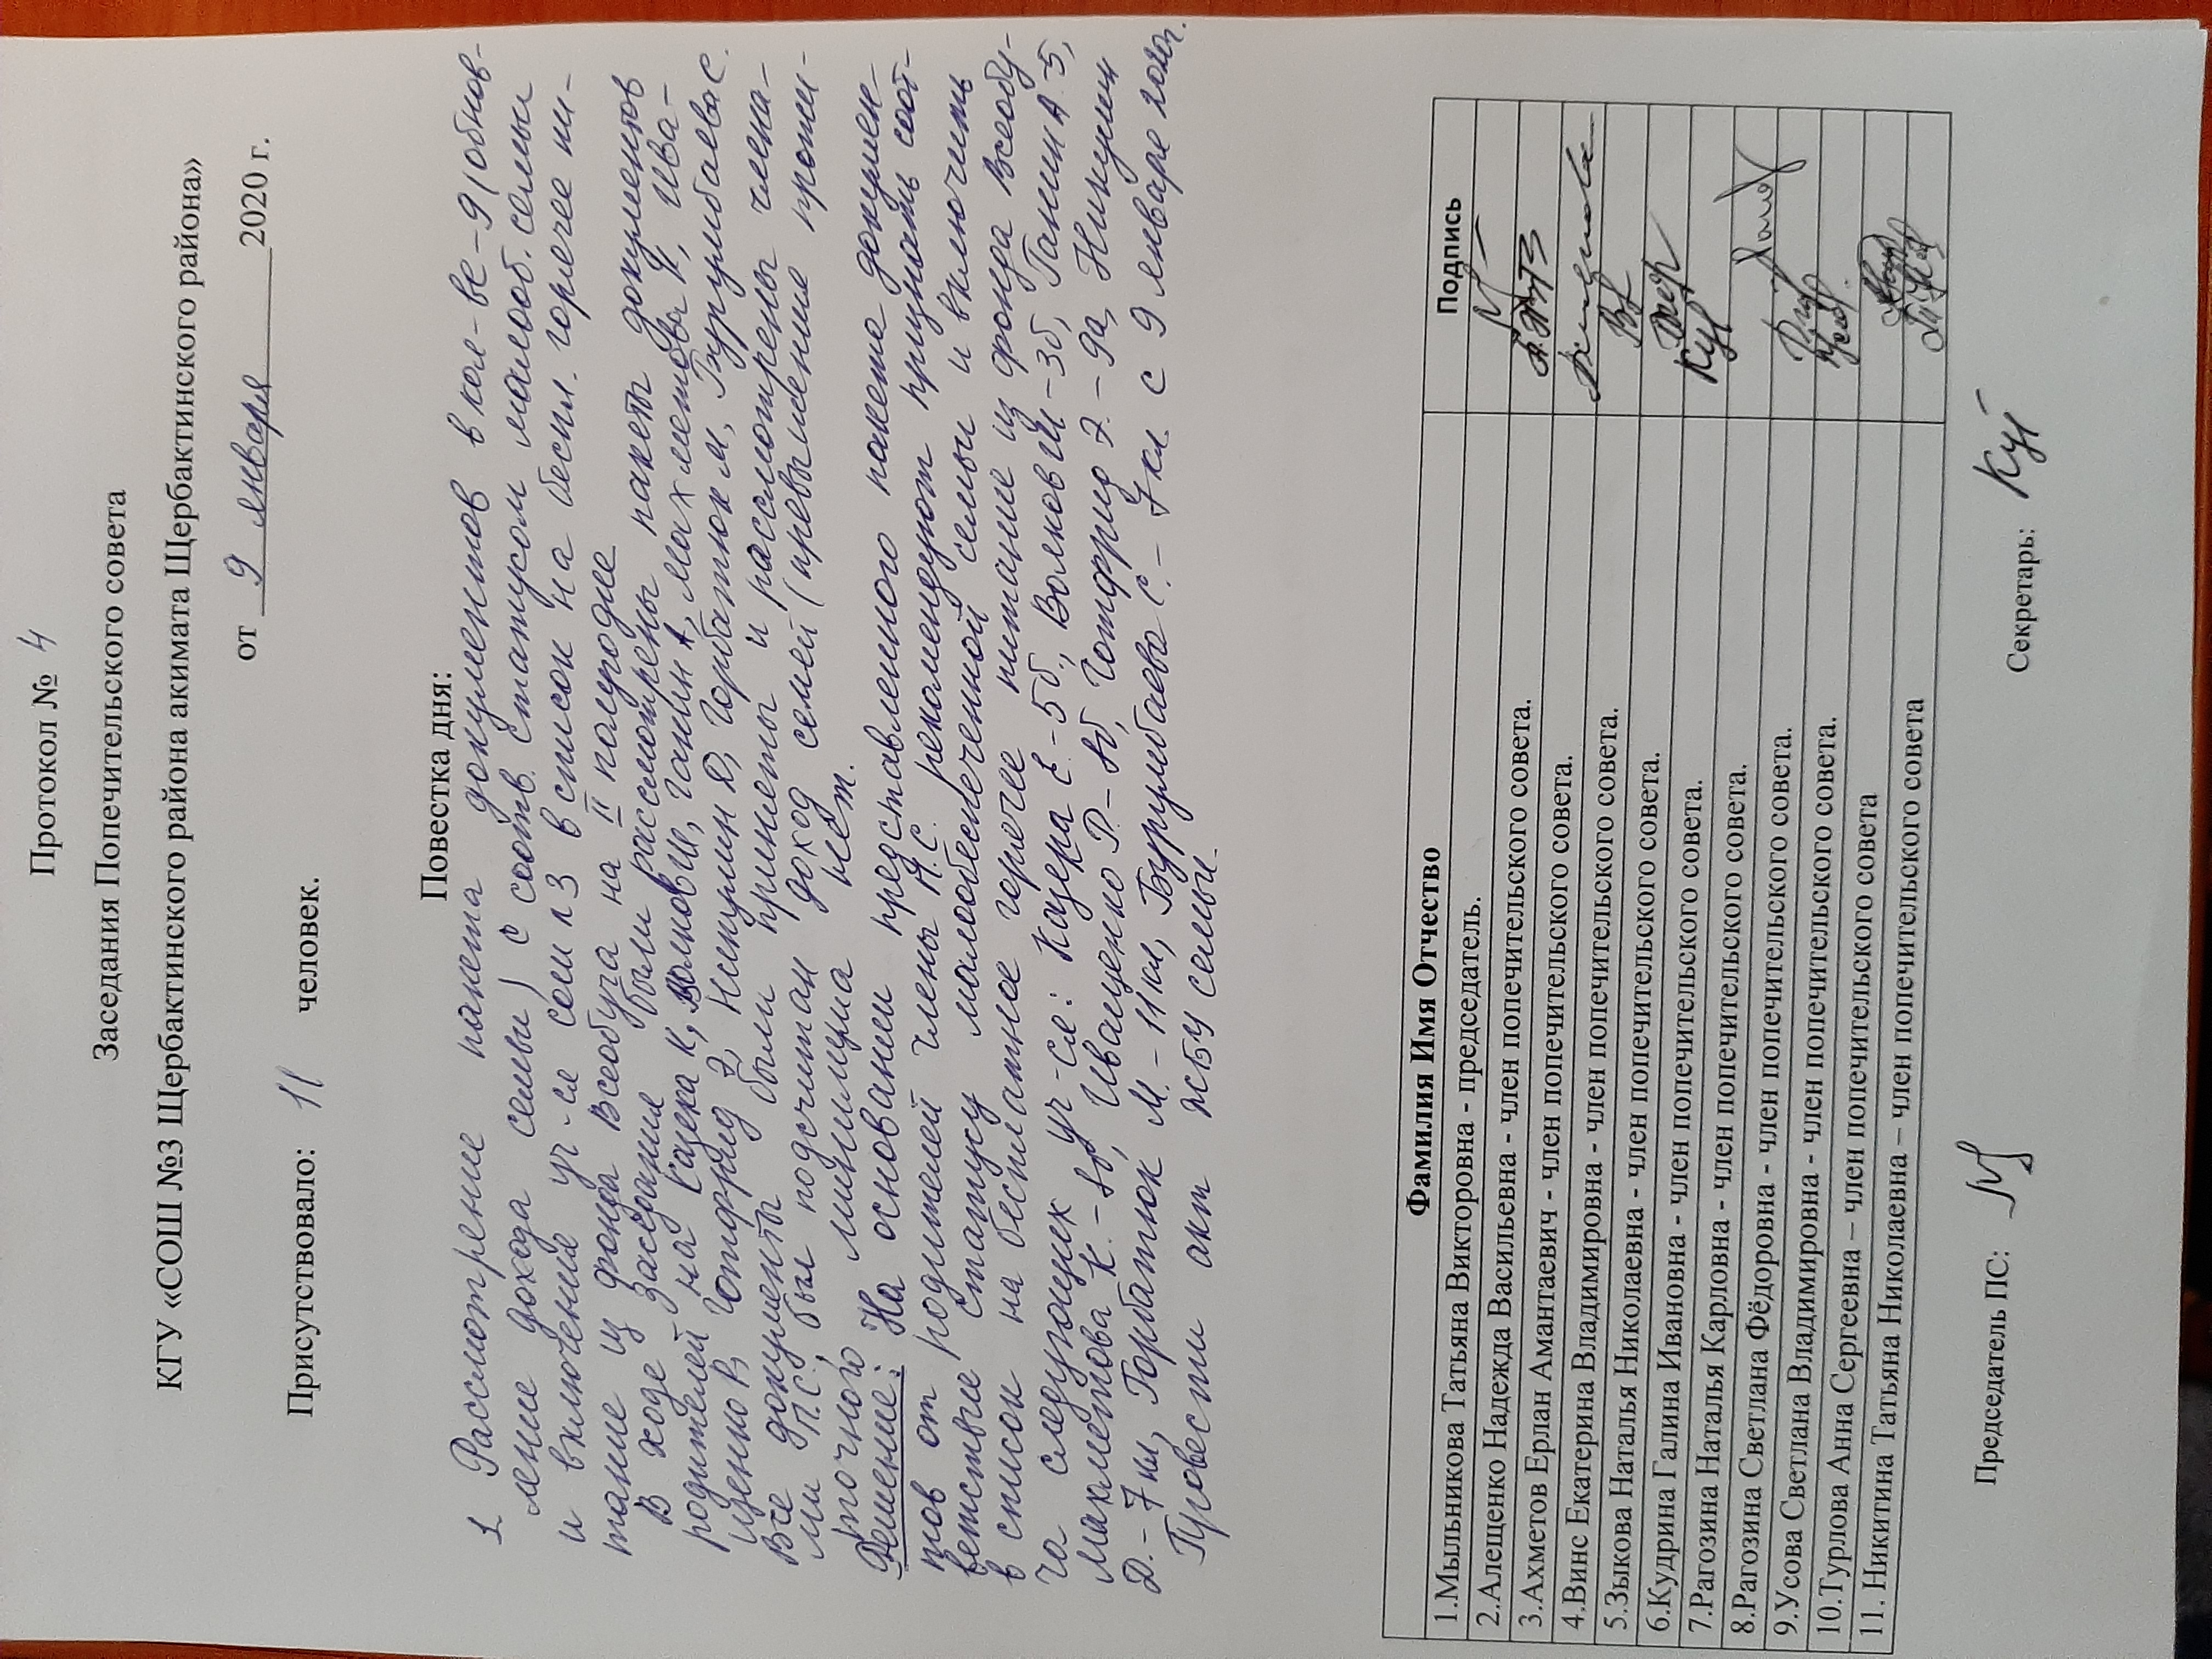 Протокол № 4
Заседания Попечительского совета
КГУ «СОШ №3 Щербактинского района акимата Щербактинского района»
от 9 января 2020 г.
Присутствовало: 11 человек.
Повестка дня:
1 Рассмотрение пакета документов в кол-ве-9 (обнов-
ление дохода семьи) с соотв. статусом малооб. семьи
и включения уч-ся сош п 3 в список на беспл. горячее пи-
тание из фонда Всеобуча на II полугодие
В ходе заседания были рассмотрены пакеты документов
родителей на Кацера К, Волков И, Ганин А, Махметова К, Ива-
щенко Р, Готфрид Э, Никулин Д, Горбатюк М, Турумбаева С.
Все документы были приняты и рассмотрены члена-
ми П.С., был подсчитан доход семей (превышение прожи-
точного минимума нет.
Решение: На основании представленного пакета докумен-
тов от родителей члены П.С. рекомендуют признать соот-
ветствие статусу малообеспеченной семьи и включить
в список на бесплатное горячее питание из фонда Всеобу-
ча следующих уч-ся: Кацера Е-5б., Волков И-3б, Ганин А-5,
Махметова К.- Иващенко Р- Готфрид Э.-9а, Никулин
Д.-7кл, Горбатюк М.-11кл, Турумбаева С.-7кл с 9 января 2020г.
Провести акт ЖБУ семьи.
Фамилия Имя Отчество Подпись
1.Мыльникова Татьяна Викторовна - председатель.
2.Алещенко Надежда Васильевна - член попечительского совета.
3.Ахметов Ерлан Амантаевич - член попечительского совета.
4.Винс Екатерина Владимировна - член попечительского совета.
5.Зыкова Наталья Николаевна - член попечительского совета.
6.Кудрина Галина Ивановна - член попечительского совета.
7.Рагозина Наталья Карловна - член попечительского совета.
8.Рагозина Светлана Фёдоровна - член попечительского совета.
9.Усова Светлана Владимировна - член попечительского совета.
10.Турлова Анна Сергеевна – член попечительского совета
11. Никитина Татьяна Николаевна – член попечительского совета
Председатель ПС: Секретарь: